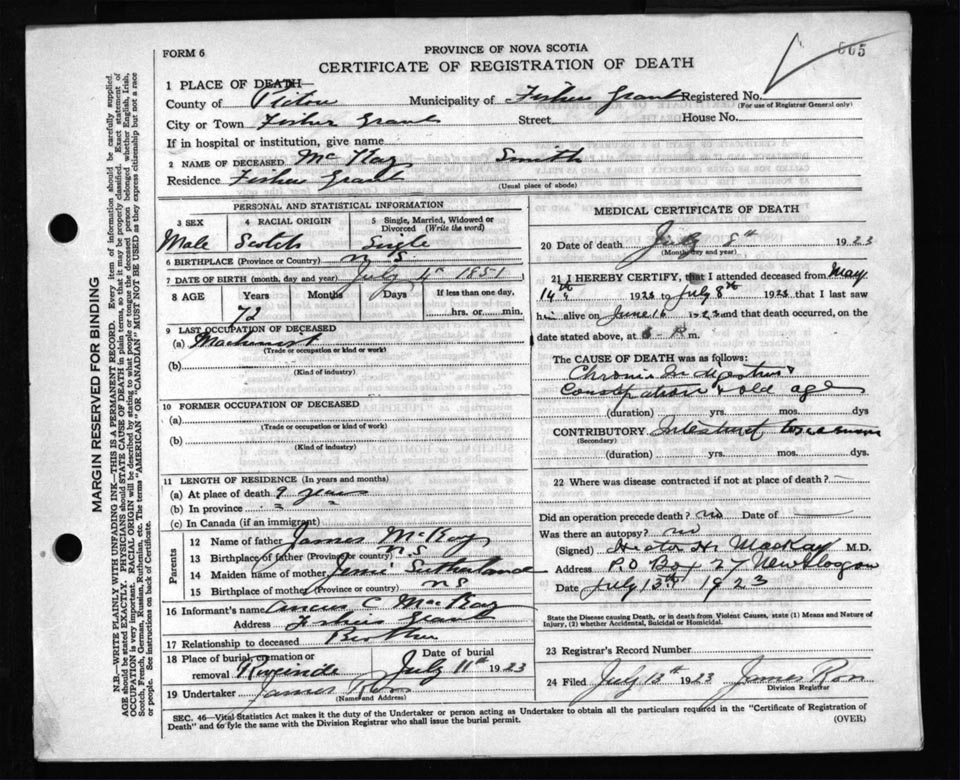 FORM 6
PROVINCE OF NOVA SCOTIA
CERTIFICATE OF REGISTRATION OF DEATH
665
1 PLACE OF DEATH
County of Pictou Municipality of Fisher Grant Registered No.
(For use of Registrar General only)
City or Town Fisher Grant Street House No.
If in hospital or institution, give name
2 NAME OF DECEASED McKay Smith
Residence Fisher Grant
(Usual place of abode)
PERSONAL AND STATISTICAL INFORMATION
3 SEX 4 RACIAL ORIGIN 5 Single, Married, Widowed or Divorced (Write the word)
Male Scotch Single
6 BIRTHPLACE (Province or Country) N S
7 DATE OF BIRTH (month, day and year) July 4th 1851
8 AGE Years Months Days If less than one day,
72 hrs. or min.
9 LAST OCCUPATION OF DECEASED
(a) Machinist
(Trade or occupation or kind or work)
(b)
(Kind of industry)
10 FORMER OCCUPATION OF DECEASED
(a)
(Trade or occupation or kind or work)
(b)
(Kind of industry)
11 LENGTH OF RESIDENCE (In years and months)
(a) At place of death 9 years
(b) In province " "
(c) In Canada (if an immigrant)
Parents
12 Name of father James McKay
13 Birthplace of father (Province or country) N.S
14 Maiden name of mother Jessie Sutherland
15 Birthplace of mother (Province or country) N S
16 Informant's name C McKay
Address Fisher Grant
17 Relationship to deceased Brother
18 Place of burial, cremation or removal Date of burial
July 11th 1923
19 Undertaker James Ross
(Name and Address)
MEDICAL CERTIFICATE OF DEATH
20 Date of death July 8th 1923
(Month, day and year)
21 I HEREBY CERTIFY, that I attended deceased from May
14th 1923 to July 8th 1923 that I last saw
him alive on June 16 1923 and that death occurred, on
date stated above, at 6 m.
The CAUSE OF DEATH was as follows:
Chronic Indigestion &
Constipation & old age
(duration) yrs. mos. dys
CONTRIBUTORY
(Secondary)
(duration) yrs. mos. dys.
22 Where was disease contracted if not at place of death? —
Did an operation precede death? no Date of —
Was there an autopsy? no
(Signed) Hector H. MacKay M.D.
Address P.O Box 27 New Glasgow
Date July 13th 1923
State the Disease causing Death, or in death from Violent Causes, state (1) Means and Nature of
Injury, (2) whether Accidental, Suicidal or Homicidal.
23 Registrar's Record Number
24 Filed July 13th 1923 James Ross
Division Registrar
SEC. 46—Vital Statistics Act makes it the duty of the Undertaker or person acting as Undertaker to obtain all the particulars required in the "Certificate of Registration of
Death" and to fyle the same with the Division Registrar who shall issue the burial permit. (OVER)
MARGIN RESERVED FOR BINDING
N.B.—WRITE PLAINLY WITH UNFADING INK—THIS IS A PERMANENT RECORD. Every item of information should be carefully supplied.
AGE should be stated EXACTLY. PHYSICIANS should STATE CAUSE OF DEATH in plain terms, so that it may be properly classified. Exact statement of
OCCUPATION is very important. RACIAL ORIGIN will be described by stating to what people or tongue the deceased person belonged whether English, Irish,
Scotch, French, German, Russian, Ruthenian, etc. The terms "AMERICAN" OR "CANADIAN" MUST NOT BE USED as they express citizenship but not a race
or people. See instructions on back of Certificate.